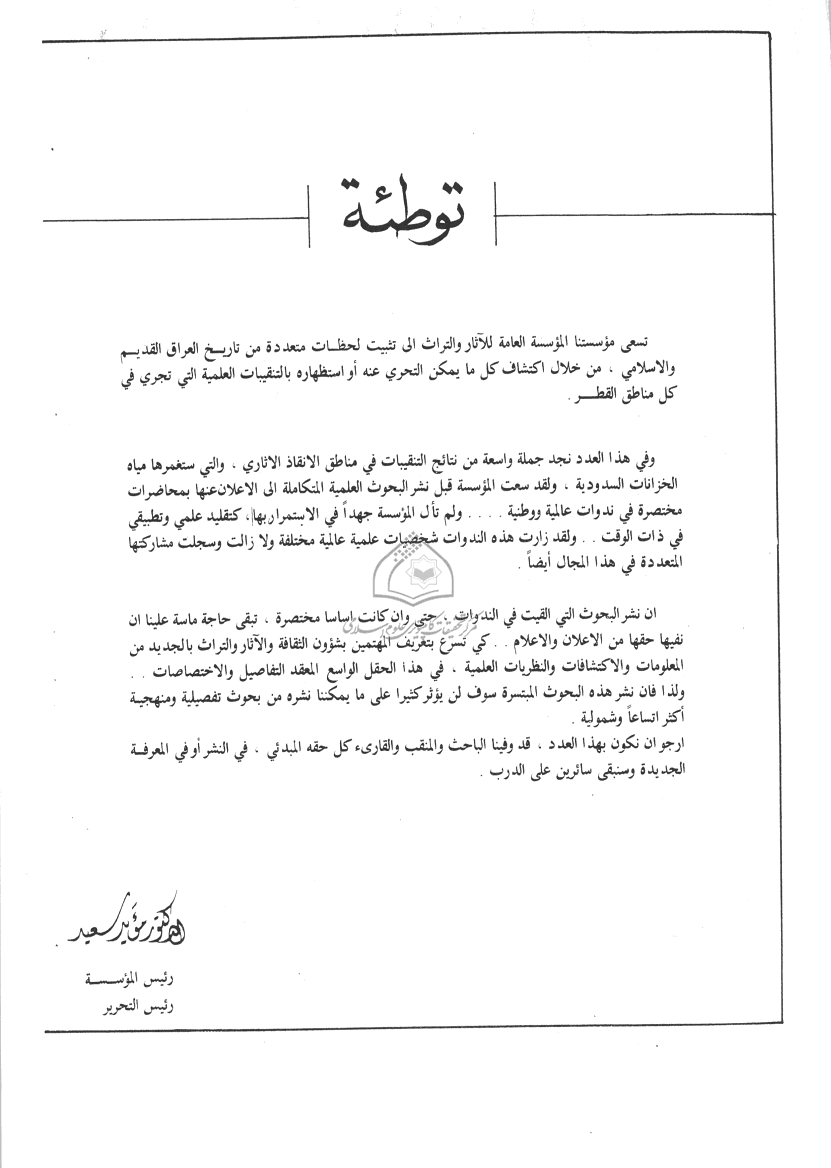 توطئة
تسعى مؤسستنا المؤسسة العامة للآثار والتراث الى تثبيت لحظات متعددة من تاريخ العراق القديم
والاسلامي ، من خلال اكتشاف كل ما يمكن التحري عنه أو استظهاره بالتنقيبات العلمية التي تجري في
كل مناطق القطر .
وفي هذا العدد نجد جملة واسعة من نتائج التنقيبات في مناطق الانقاذ الاثاري ، والتي ستغمرها مياه
الخزانات السدودية ، ولقد سعت المؤسسة قبل نشر البحوث العلمية المتكاملة الى الاعلان عنها بمحاضرات
مختصرة في ندوات عالمية ووطنية . . . . ولم تأل المؤسسة جهداً في الاستمرار بها، كتقليد علمي وتطبيقي
في ذات الوقت . . ولقد زارت هذه الندوات شخصيات علمية عالمية مختلفة ولا زالت وسجلت مشاركتها
المتعددة في هذا المجال أيضاً .
ان نشر البحوث التي القيت في الندوات ، حتى وان كانت اساسا مختصرة ، تبقى حاجة ماسة علينا ان
نفيها حقها من الاعلان والاعلام . . كي نسرع بتعريف المهتمين بشؤون الثقافة والآثار والتراث بالجديد من
المعلومات والاكتشافات والنظريات العلمية ، في هذا الحقل الواسع المعقد التفاصيل والاختصاصات . .
ولذا فان نشر هذه البحوث المبتسرة سوف لن يؤثر كثيرا على ما يمكننا نشره من بحوث تفصيلية ومنهجية
أكثر اتساعاً وشمولية .
ارجو ان نكون بهذا العدد ، قد وفينا الباحث والمنقب والقارىء كل حقه المبدئي ، في النشر أو في المعرفة
الجديدة وسنبقى سائرين على الدرب .
الدكتور مؤيد سعيد
رئيس المؤسسة
رئيس التحرير